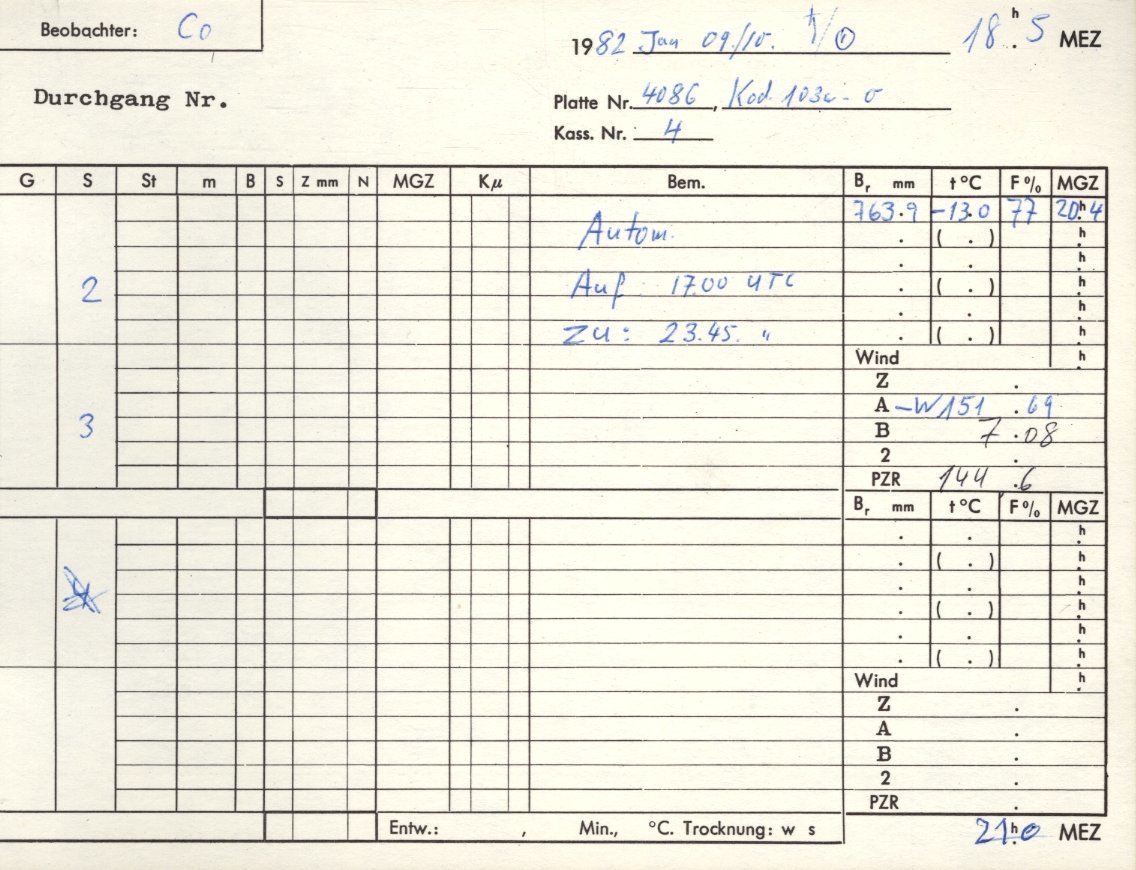 Beobachter: Co
1982 Jan 09./10. ♄/☉ 18h.5 MEZ
Durchgang Nr.
Platte Nr. 4086, Kod. 103a-O
Kass. Nr. 4
G S St m B S Z mm N MGZ Kµ Bem. Br mm t °C F % MGZ
763.9 -13.0 77 20h.4
Autom.
. ( . ) h.
. . h.
2 Auf 17.00 UTC . ( . ) h.
. . h.
zu: 23.45. " . ( . ) h.
Wind h.
Z .
A -W151 .69
3 B 7.08
2 .
PZR 144.6
Br mm t °C F % MGZ
. . h.
. ( . ) h.
. . h.
. ( . ) h.
. . h.
. ( . ) h.
Wind h.
Z .
A .
B .
2 .
PZR .
Entw.: , Min., °C. Trocknung: w s
21h.0 MEZ